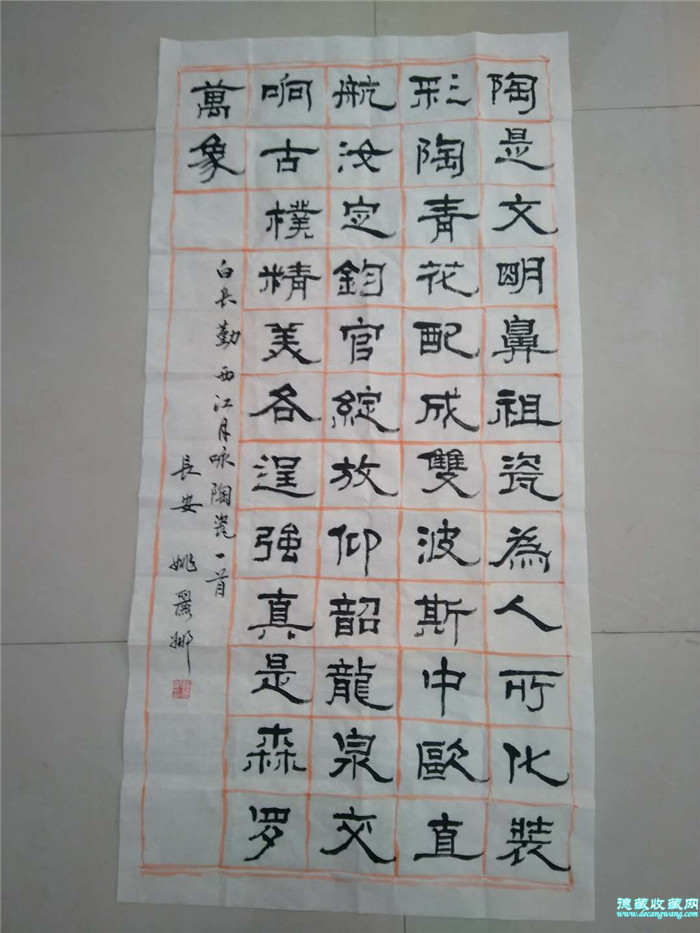 陶是文明鼻祖瓷為人所化裝
彩陶青花配成雙波斯中歐直
航汝定鈞官綻放仰韶龍泉交
响古樸精美各逞強真是森罗
萬象
白長勤西江月咏陶瓷一首
長安 姚麗娜
德藏收藏网
www.decangwang.com